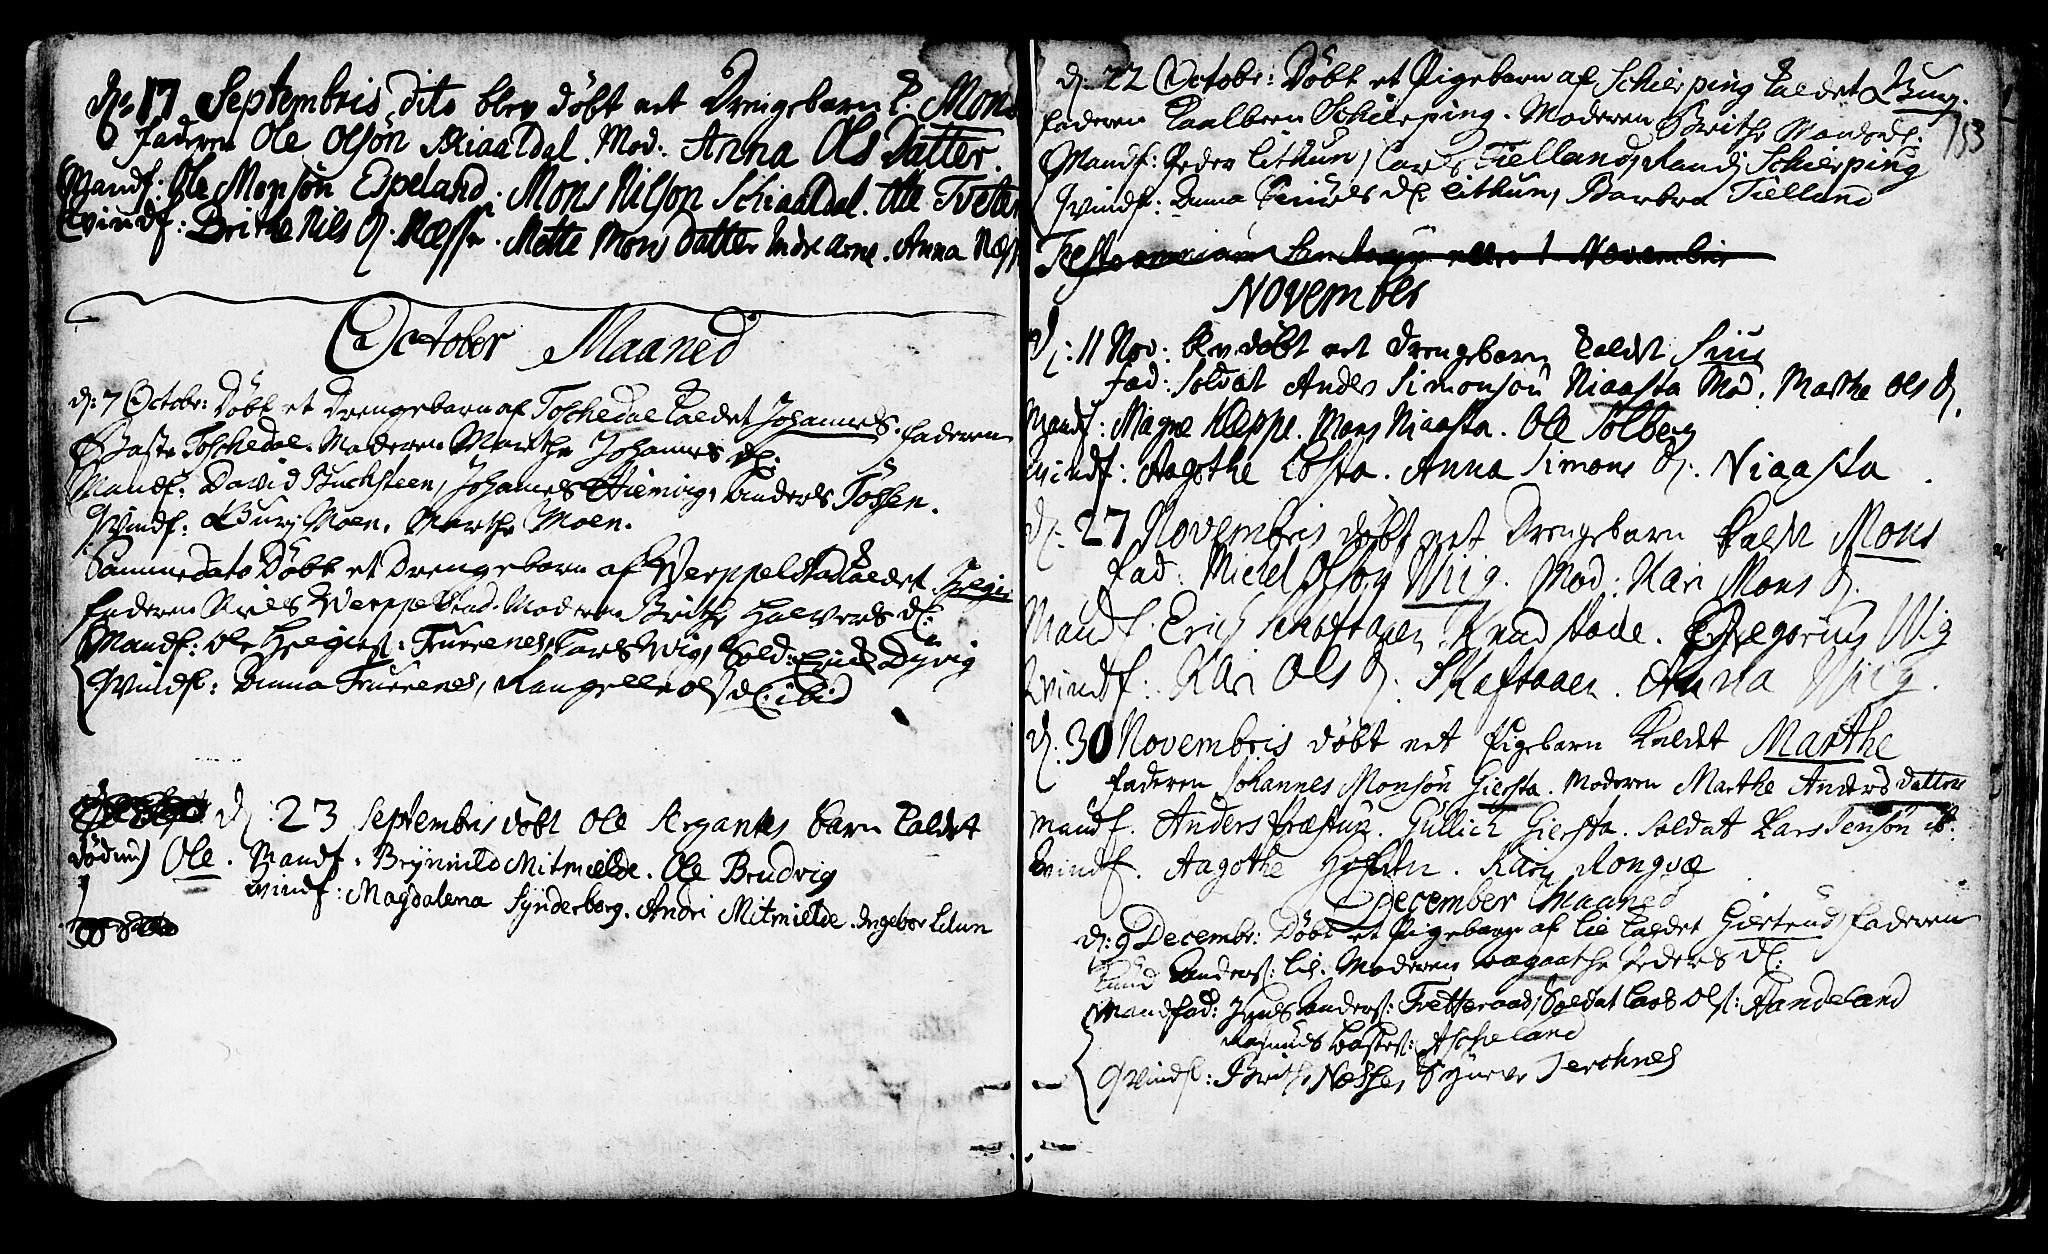 d. 17 Septembris dito blev döbt eet Drengebarn k. Mons
Faderen Ole Olsön Skiaaldal. Mod: Anna Ols Datter.
Mandf: Ole Monsön Espeland. Mons Nilson Schiaaldal. Ole Tveten
Qvindf: Brithe Nils D. Næsse. Mette Mons Datter Indre Arne. Anna Næss
October Maaned
d: 7 Octobr: Döbt et Drengebarn af Toschedal kaldet Johannes. Faderen
Baste Toschedal. Moderen Marthe Johannes D:
Mandf: David Buchsteen, Johannes Hiemvig, Anders Tossen.
Qvindf: Bury Moen, Marthe Moen.
Sammedato Döbt et Drengebarn af Veppelstad kaldet Helgi
Faderen Niels Veppelstad. Moderen Brithe Halvors D:
Mandf: Ole Helges: Fuerenes, Lars Wig, Sold: Erich Dyvig
Qvindf: Anna Fuerenes, Rangelle Ols D: ibid
d: 23 Septembris döbt Ole Arganks barn kaldet
Ole. Mandf: Brynnild Mitmielde. Ole Brudvig
Qvindf: Magdalena Synderborg. Andri Mitmielde. Ingebor Lilun
153
d: 22 Octobr: Döbt et Pigebarn af Schierping kaldet Bury.
Faderen Kaalbeen Schierping. Moderen Brithe Mons D:
Mandf: Peder Lithun, Lars Tielland, Randj Schierping
Qvindf: Anna D: Lithun, Barbra Tielland
Festo omnium Sanctorum eller 1 Novembris
November
d: 11 Nov: blev döbt eet Drengebarn kaldt Siur
Fad: Soldat Anders Simonsön Niaasta Mod. Marthe Ols D.
Mandf: Magne Kleppe. Mons Niaasta. Ole Solberg
Qvindf: Aagothe Losta. Anna Simons D: Niaasta
d: 27 Novembris döbt eet Drengebarn kaldt Mons
Fad: Michel Olsön Wiig. Mod: Kari Mons D.
Mandf. Erich Schaftaaen. Knud Stade. Gregorius Wig
Qvindf: Kari Ols D. Skaftaaen. Anna Wiig.
d. 30 Novembris döbt eet Pigebarn kaldet Marthe
Faderen Johannes Monsön Giersta. Moderen Marthe Anders Datter
Mandf. Anders Præstun. Güllich Giersta. Soldat Lars Jensön ib.
Qvindf. Aagothe Kari Rongvæ
December Maaned
d: 9 Decembr: Döbt et Pigebarn af Lie kaldet Giertrud, Faderen
Knud Anders: Lie. Moderen Aagaathe Peders D:
Mandfad: Anders: Tvetteraas, Soldat Lars Ols: Aandeland
Rasmus Bastes: Ascheland
Qvindf: Brithe Næsse, Synneve Jerchnes